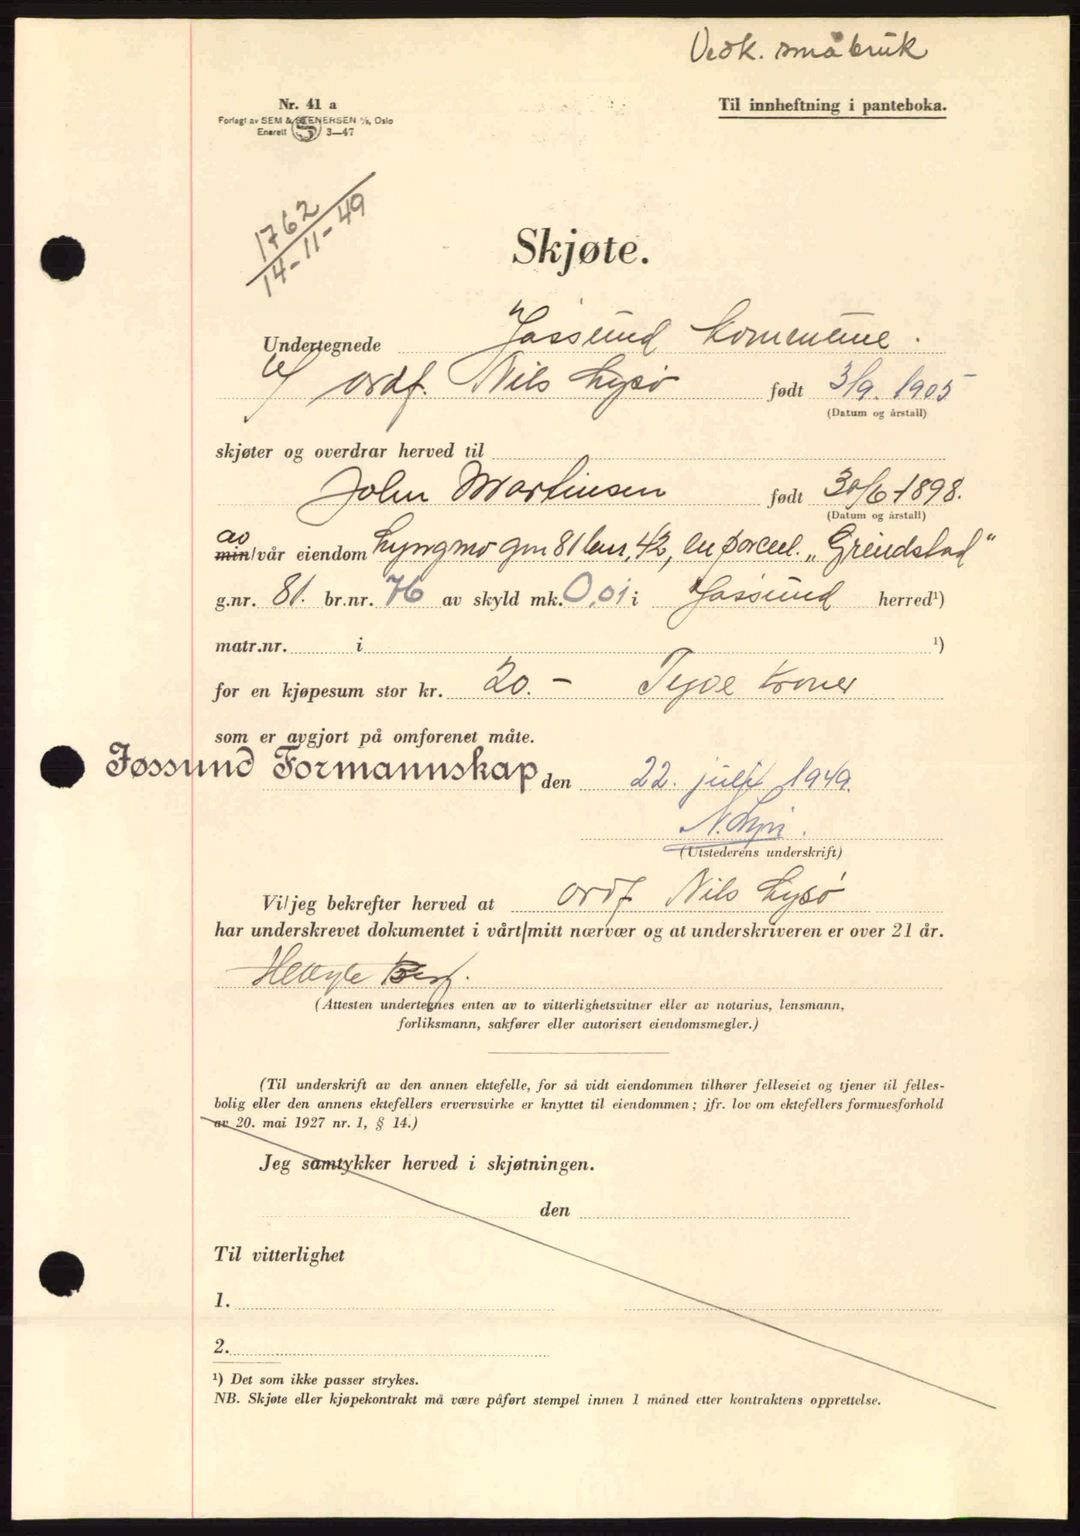 Vedk. småbruk
Nr. 41 a
Til innheftning i panteboka.
Forlagt av SEM & STENERSEN A/S, Oslo
Enerett 3—47
1762
14-11-49
Skjøte.
Undertegnede Jøssund kommune.
v/ ordf. Nils Lysø født 3/9. 1905
(Datum og årstall)
skjøter og overdrar herved til
John Martinsen født 30/6-1898.
(Datum og årstall)
av
min/vår eiendom Lyngmo gnr 81 bnr, 42, en parcel. „Grindstad"
g.nr. 81. br.nr. 76 av skyld mk. 0,01 i Jøssund herred¹)
matr.nr. i ¹)
for en kjøpesum stor kr. 20.- Tyve kroner
som er avgjort på omforenet måte.
Jøssund Formannskap den 22. juli 1949.
N. Lysø.
(Utstederens underskrift)
Vi/jeg bekrefter herved at ordf Nils Lysø
har underskrevet dokumentet i vårt/mitt nærvær og at underskriveren er over 21 år.
Berg.
(Attesten undertegnes enten av to vitterlighetsvitner eller av notarius, lensmann,
forliksmann, sakfører eller autorisert eiendomsmegler.)
(Til underskrift av den annen ektefelle, for så vidt eiendommen tilhører felleseiet og tjener til felles-
bolig eller den annens ektefellers ervervsvirke er knyttet til eiendommen; jfr. lov om ektefellers formuesforhold
av 20. mai 1927 nr. 1, § 14.)
Jeg samtykker herved i skjøtningen.
den
Til vitterlighet
1.
2.
¹) Det som ikke passer strykes.
NB. Skjøte eller kjøpekontrakt må være påført stempel innen 1 måned etter kontraktens opprettelse.